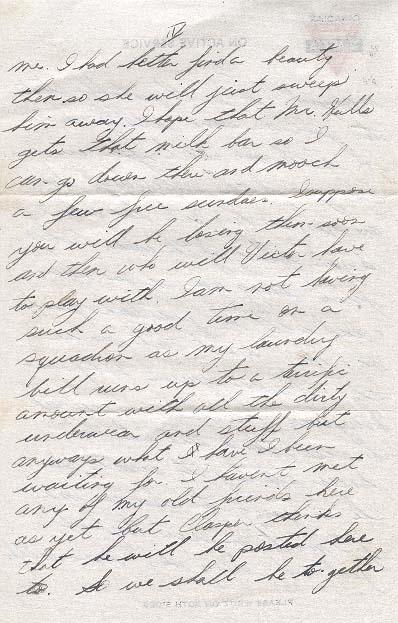 IV
me. I had better find a beauty
then so she will just sweep
him away. I hope that Mr. Halls
gets that milk bar so I
can go down there and mooch
a few free sundaes. I suppose
you will be losing them soon
and then who will Victor have
to play with. I am not having
such a good time on a
squadron as my laundry
bill runs up to a terrific
amount with all the dirty
underwear and stuff but
anyways what I have I been
waiting for. I havent met
any of my old friends here
as yet but Clasper thinks
that he will be posted here
to. So we shall be to-gether
ON ACTIVE SERVICE
CANADIAN
PLEASE WRITE ON BOTH SIDES